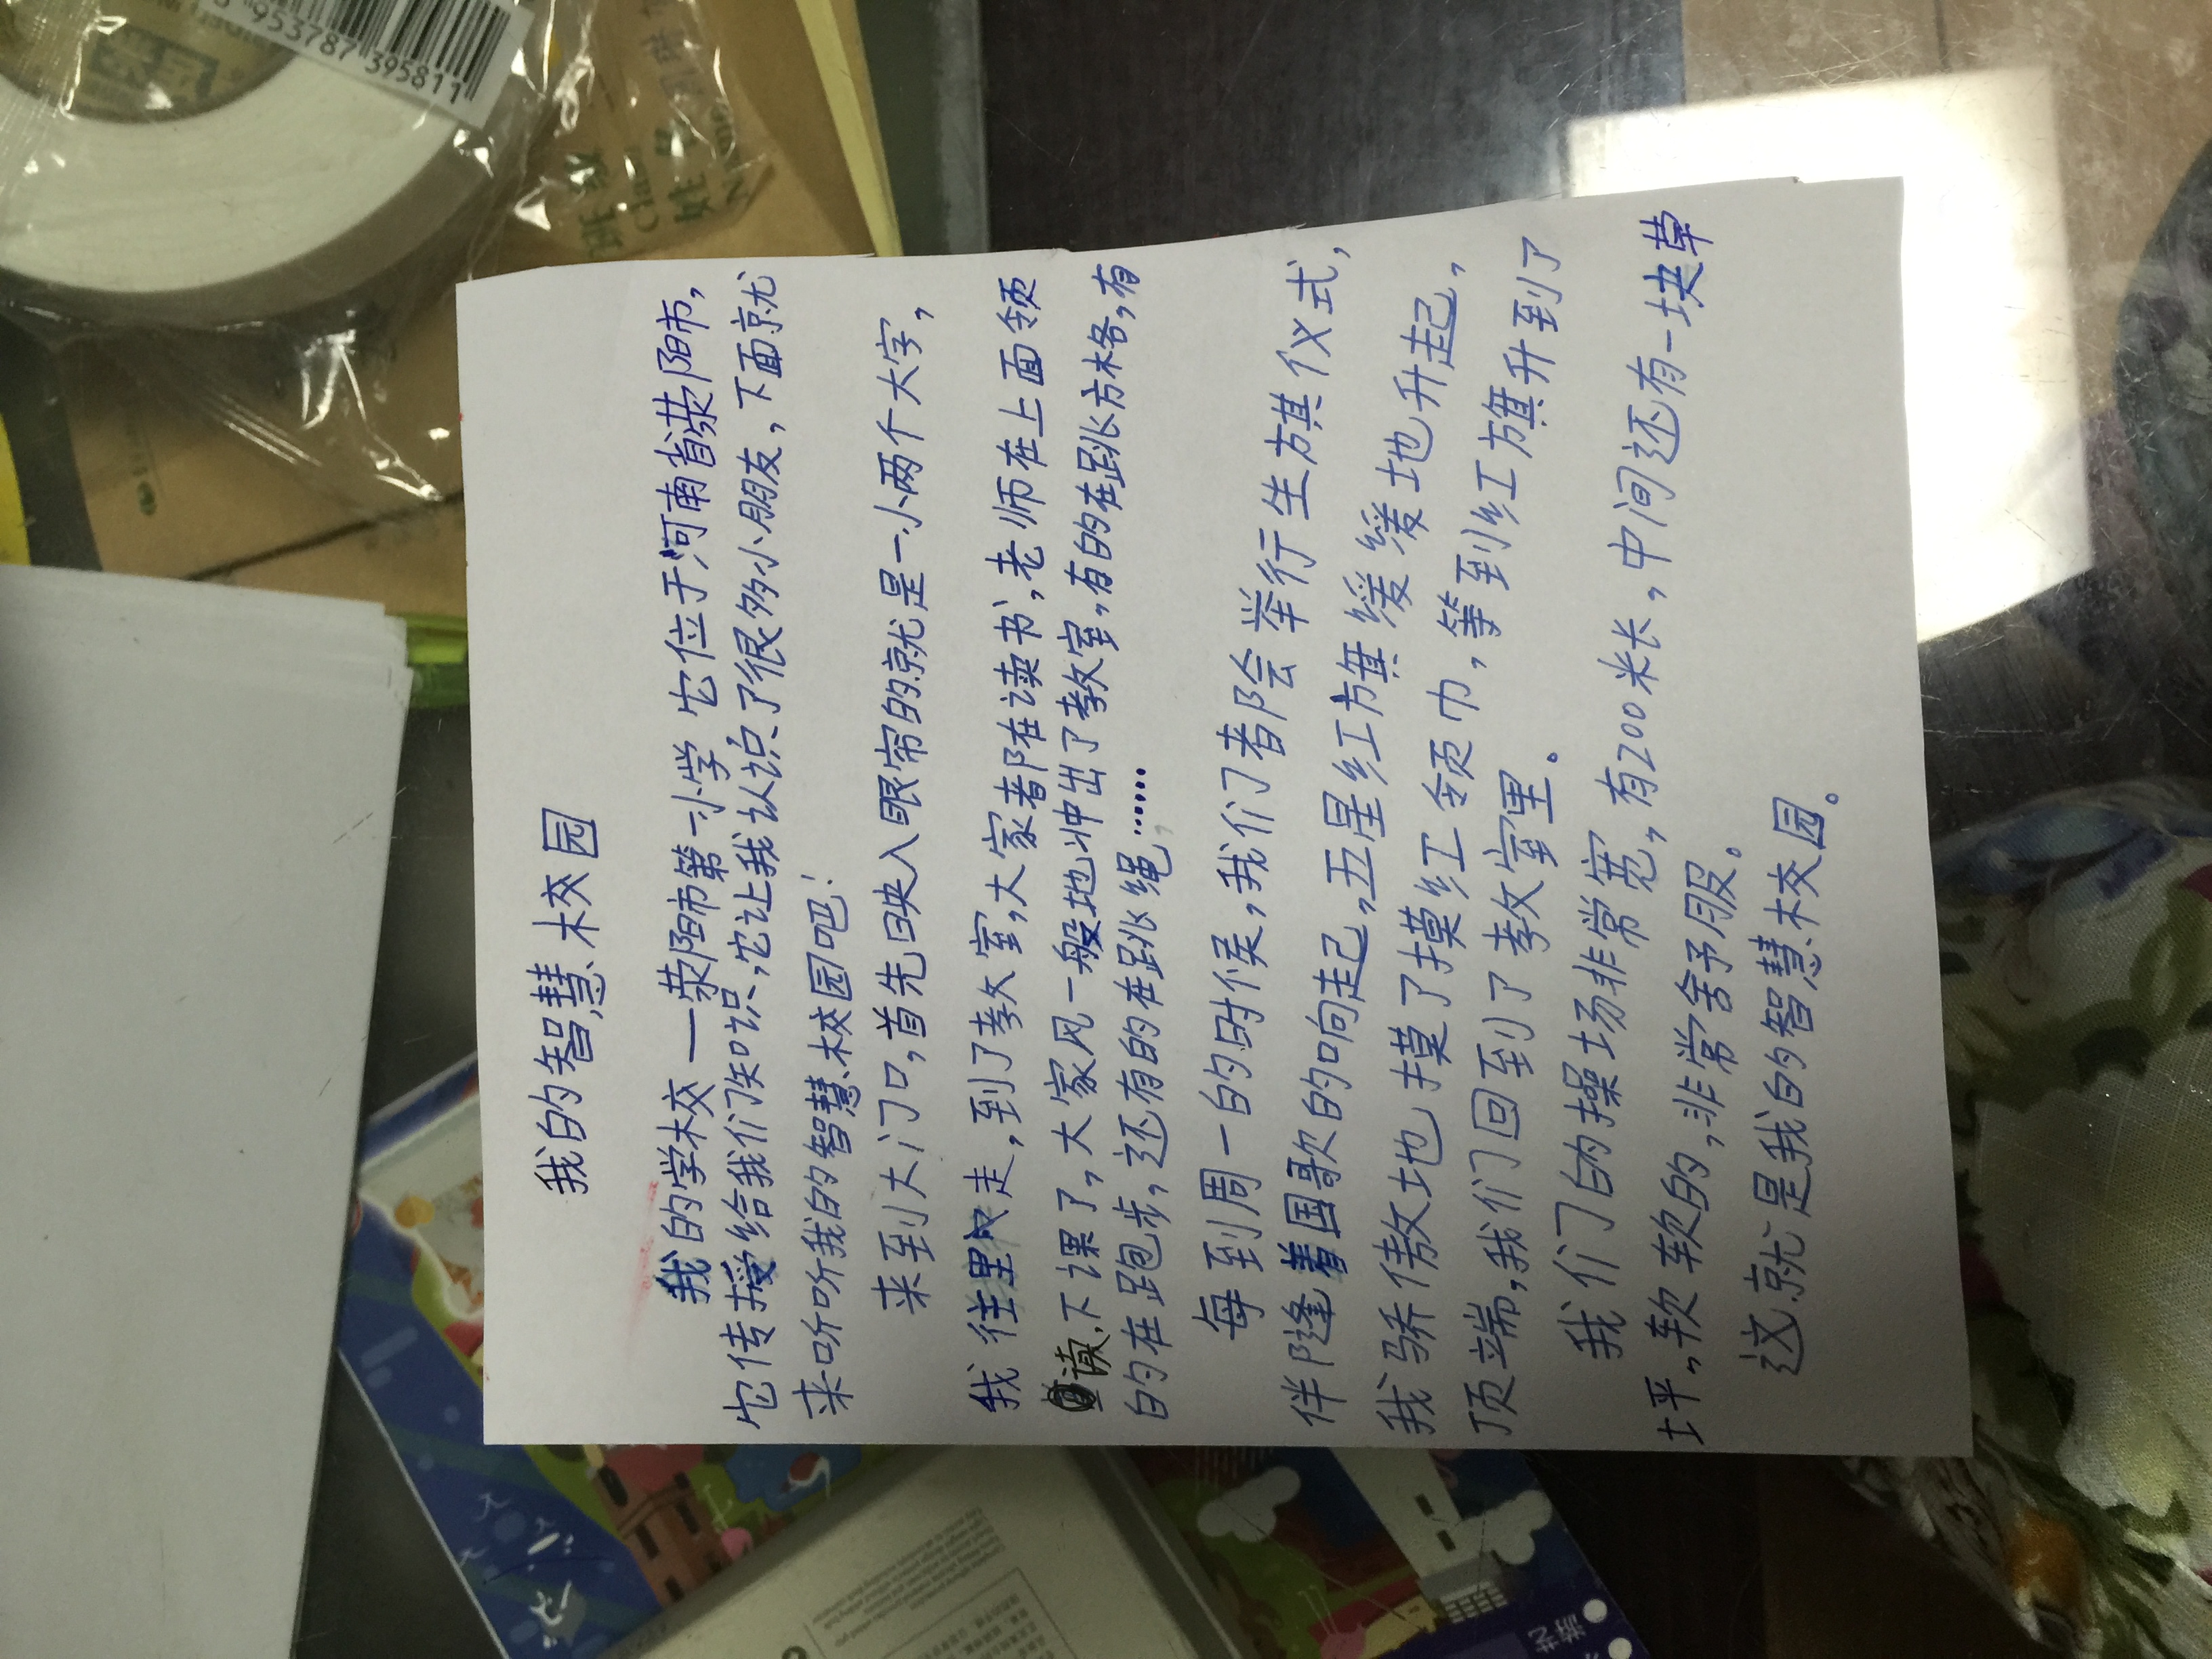 我的智慧校园
我的学校一荥阳市第一小学 它位于河南省荥阳市,
它传授给我们知识,它让我认识了很多小朋友，下面就
来听听我的智慧校园吧!
来到大门口,首先映入眼帘的就是一小两个大字,
我往里走,到了教室,大家都在读书,老师在上面领
读,下课了,大家风一般地冲出了教室,有的在跳方格,有
的在跑步,还有的在跳绳,……
每到周一的时侯,我们都会举行生旗仪式,
伴随着国歌的响起,五星红旗缓缓地升起,
我骄傲地摸了摸红领巾,等到红旗升到了
顶端,我们回到了教室里。
我们的操场非常宽,有200米长,中间还有一块草
坪,软软的,非常舍予服。
这就是我的智慧校园。
953787 395811
班级
Clas
姓名
Name
游艺